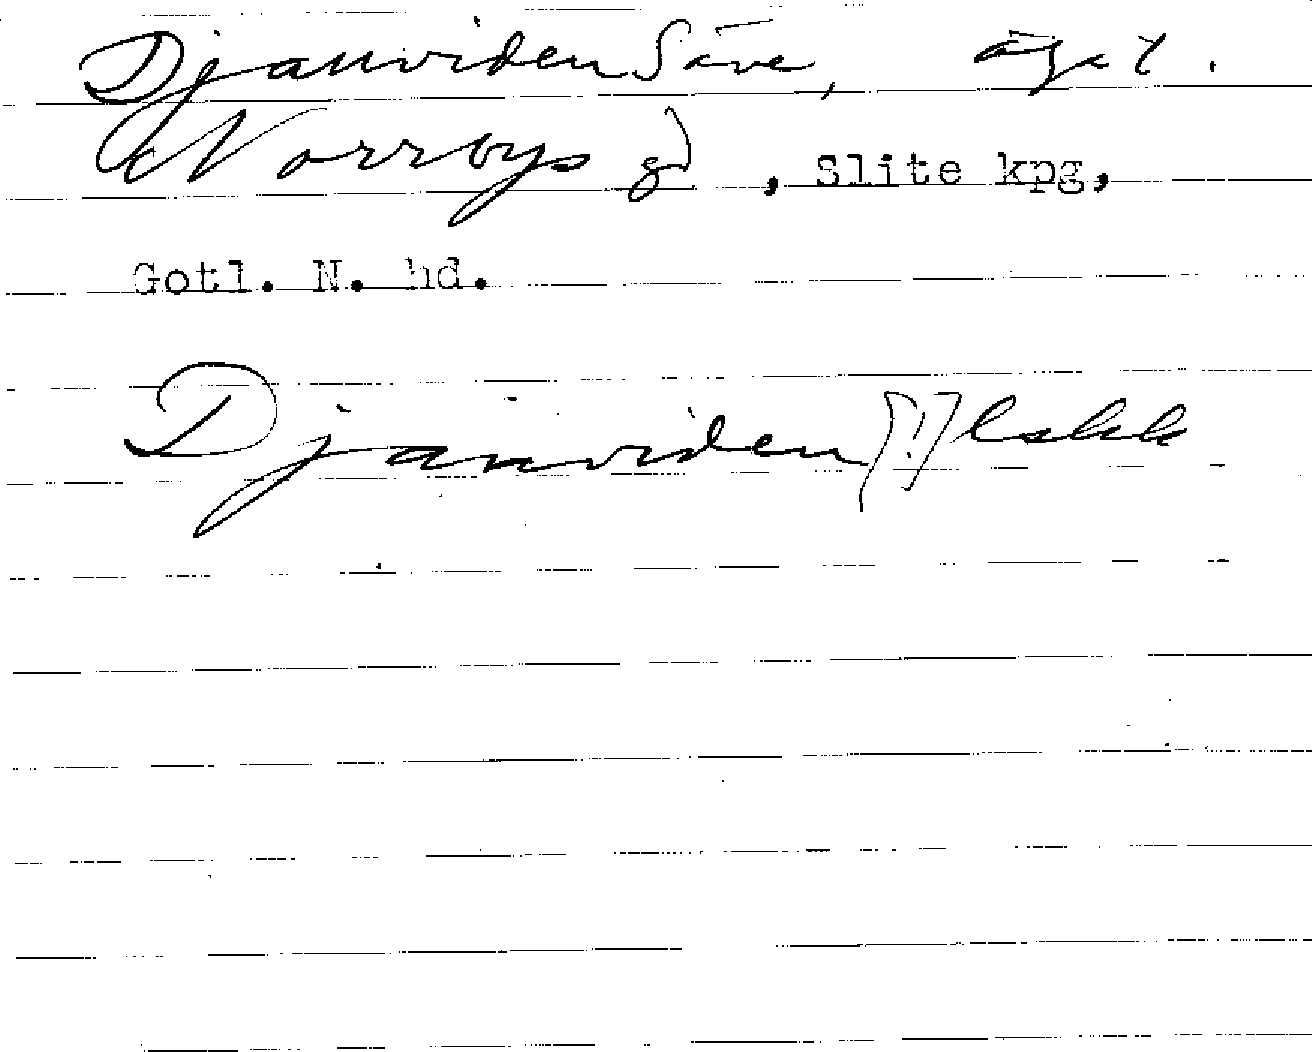 Djanviden Säve, ägot.
Norrbys gd, Slite kpg,
Gotl. N. hd.
Djanviden [!] lskk